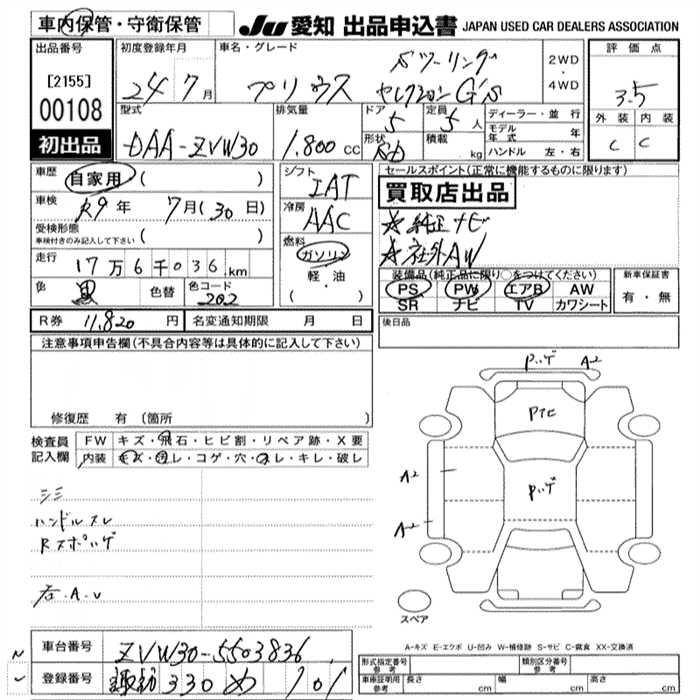 車内保管・守衛保管
JU 愛知 出品申込書 JAPAN USED CAR DEALERS ASSOCIATION
出品番号
[2155]
00108
初出品
初度登録年月
24 7月
車名・グレード
プリウス
Sツーリング
セレクション G's
2WD
・
4WD
評価点
3.5
外装 内装
C C
型式
DAA-ZVW30
排気量
1.800 CC
ドア
5
定員
5人
形状
積載
kg
ディーラー・並行
モデル年式 年
ハンドル 左・右
車歴
自家用 ( )
車検
R9年 7月(30日)
受検形態
車検付きのみ記入して下さい ( )
走行
17万6千036km
色 黒 色替 色コード 202
シフト
IAT
冷房
AAC
燃料
ガソリン
軽・油
( )
セールスポイント(正常に機能するものに限ります)
買取店出品
☆純正ナビ
☆社外AW
装備品(純正品に限り○をつけてください)
PS PW エアB AW
SR ナビ TV カワシート
新車保証書
有・無
R券 11,820 円 名変通知期限 月 日
後日品
注意事項申告欄(不具合内容等は具体的に記入して下さい)
修復歴 有 (箇所
検査員
記入欄
FW キズ・飛石・ヒビ割・リペア跡・X要
内装 キズ・汚レ・コゲ・穴・スレ・キレ・破レ
シミ
ハンドルスレ
Rスポハゲ
右A.U
Pハゲ A2
Pトビ
Pハゲ
A2
A2
スペア
A-キズ E-エクボ U-凹み W-補修跡 S-サビ C-腐食 XX-交換済
車台番号 ZVW30-5503836
登録番号 諏訪 330 め 101
形式指定番号
参考
類別区分番号
参考
車庫証明用
参考
長さ cm 幅 cm 高さ cm